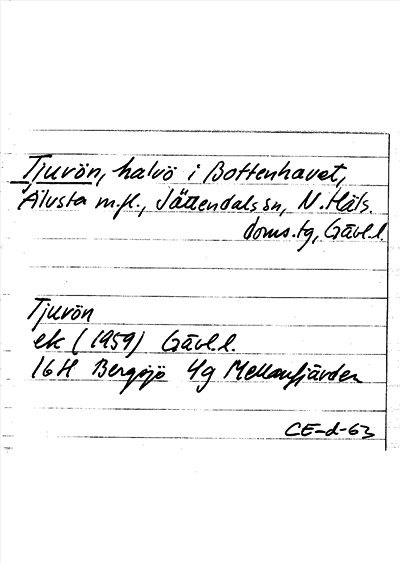 Tjuvön, halvö i Bottenhavet,
Älvsta m.fl., Jättendals sn, N. Häls.
doms.tg, Gävl.l.
Tjuvön
ek (1959) Gävl.l.
16H Bergsjö 4g Mellanfjärden
CE-d-63